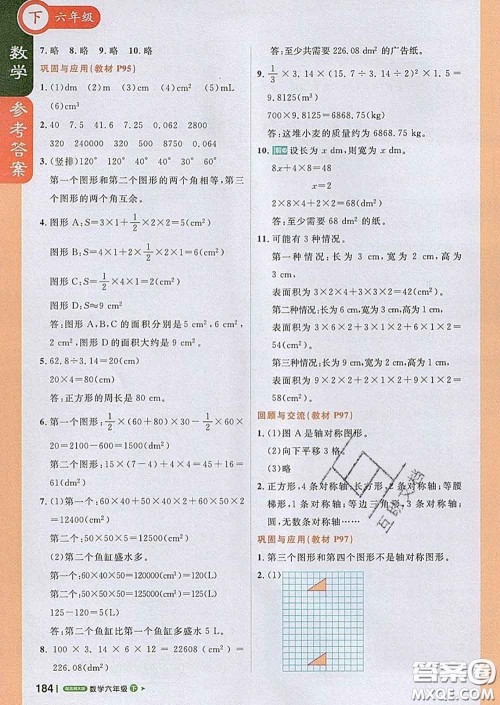 下 六年级
数学
参考答案
7.略 8.略 9.略 10.略
巩固与应用(教材 P95)
1.(1)dm (2)m (3)cm (4)cm (5)mL
(6)cm
2. 40 7.5 41.6 3.25 0.25 2500
320 240000 320 5800 5.8
3.(竖排)120° 60° 40° 160° 30° 120°
第一个图形和第二个图形的两个角相等,第三
个图形的两个角互余。
4.图形 A:S=3×1+1/2×2×2=5(cm²)
图形 B:S=4×1+1/2×2×1=5(cm²)
图形 C:S=1/2×4×1=2(cm²)
图形 D:S≈9 cm²
答:图形 A、B、C 的面积分别是 5 cm²、5 cm²、
2 cm²,图形 D 的面积大约是 9 cm²。
5. 62.8÷3.14=20(cm)
20×4=80(cm)
答:正方形的周长是 80 cm。
6.第一个图形:1/2×(60+80)×30-1/2×60×
30=1200(cm²)
第二个图形:15+15÷2×4+15=45+16=
61(cm²)
7.(1)第一个:60×40+50×40×2+60×50×2
=12400(cm²)
第二个:60×40+50×40×2+60×50×2
=12400(cm²)
(2)第二个鱼缸盛水多。
第一个:60×50×40=120000(cm³)=120(L)
第二个:50×50×50=125000(cm³)=125(L)
125-120=5(L)
答:第二个鱼缸比第一个鱼缸多盛水 5 L。
8. 100×3.14×6×12=22608(cm²)=
226.08(dm²)
答:至少共需要 226.08 dm² 的广告纸。
9. 1/3×3.14×(15.7÷3.14÷2)²×1.5=
9.8125(m³)
700×9.8125=6868.75(kg)
答:这堆小麦的质量约为 6868.75 kg。
10. 设长为 x dm,则宽为 x dm。
8x+4×8=48
x=2
2×8×4+2×2=68(dm²)
答:至少需要 68 dm² 的纸。
11.可能有 3 种情况:
第一种情况:长为 3 cm,宽为 2 cm,高为
2 cm,
表面积为 3×2×4+2×2×2=32(cm²)
第二种情况:长为 6 cm,宽为 2 cm,高为 1 cm,
表面积为 6×2×2+6×1×2+2×1×2=
40(cm²)
第三种情况:长为 3 cm,宽为 4 cm,高为 1 cm,
表面积为 3×4×2+4×1×2+3×1×2=
38(cm²)
回顾与交流(教材 P97)
1.(1)图 A 是轴对称图形。
(2)向下平移 3 格。
(3)略
2.正方形,4 条对称轴;长方形,2 条对称轴;等腰
梯形,1 条对称轴;等边三角形,3 条对称轴;
圆,无数条对称轴……
巩固与应用(教材 P97)
1.第三个图形和第四个图形不是轴对称图形。
2.(1)
184 数学六年级 下
答案圈
MXQE.COM